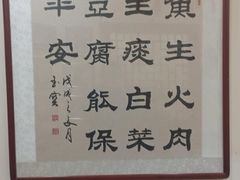 黄生火肉
生痰白菜
豆腐能保
平安
戊戌之文月
玉宝